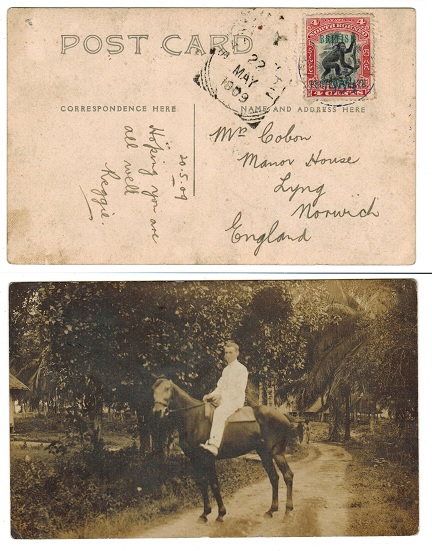 POST CARD
22
MAY
1909
NORTH BORNEO
BRITISH
PROTECTORATE
4 CENTS
CORRESPONDENCE HERE
NAME AND ADDRESS HERE
20.5.09
Hoping you are
all well
Reggie.
Mrs Cobon
Manor House
Lyng
Norwich
England